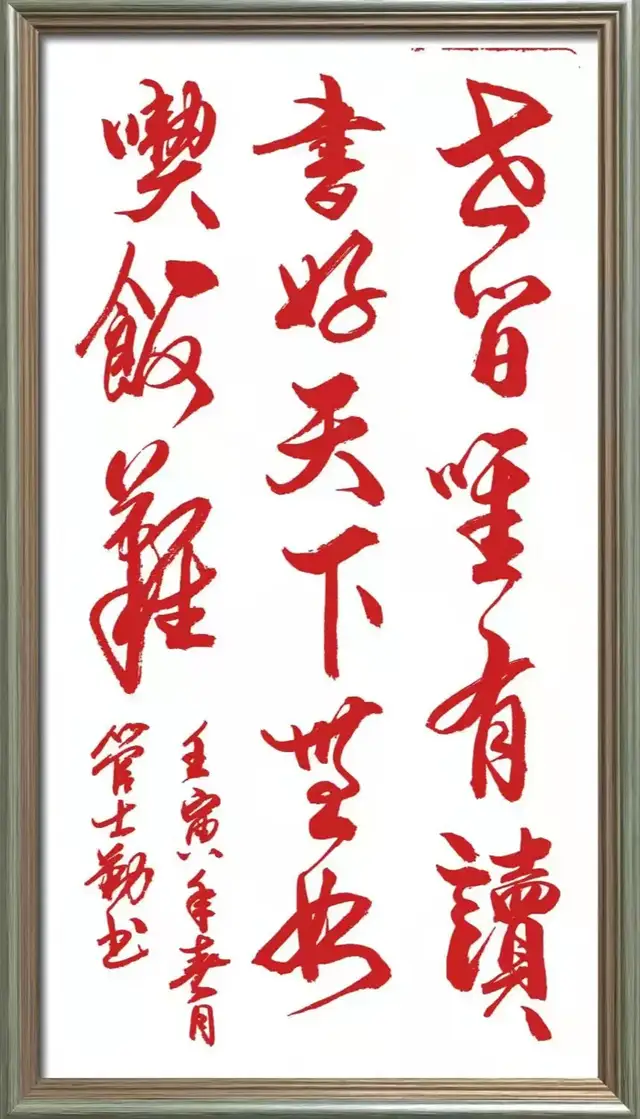 世皆唯有讀
書好天下無如
喫飯難
壬寅年春月
管士勤书